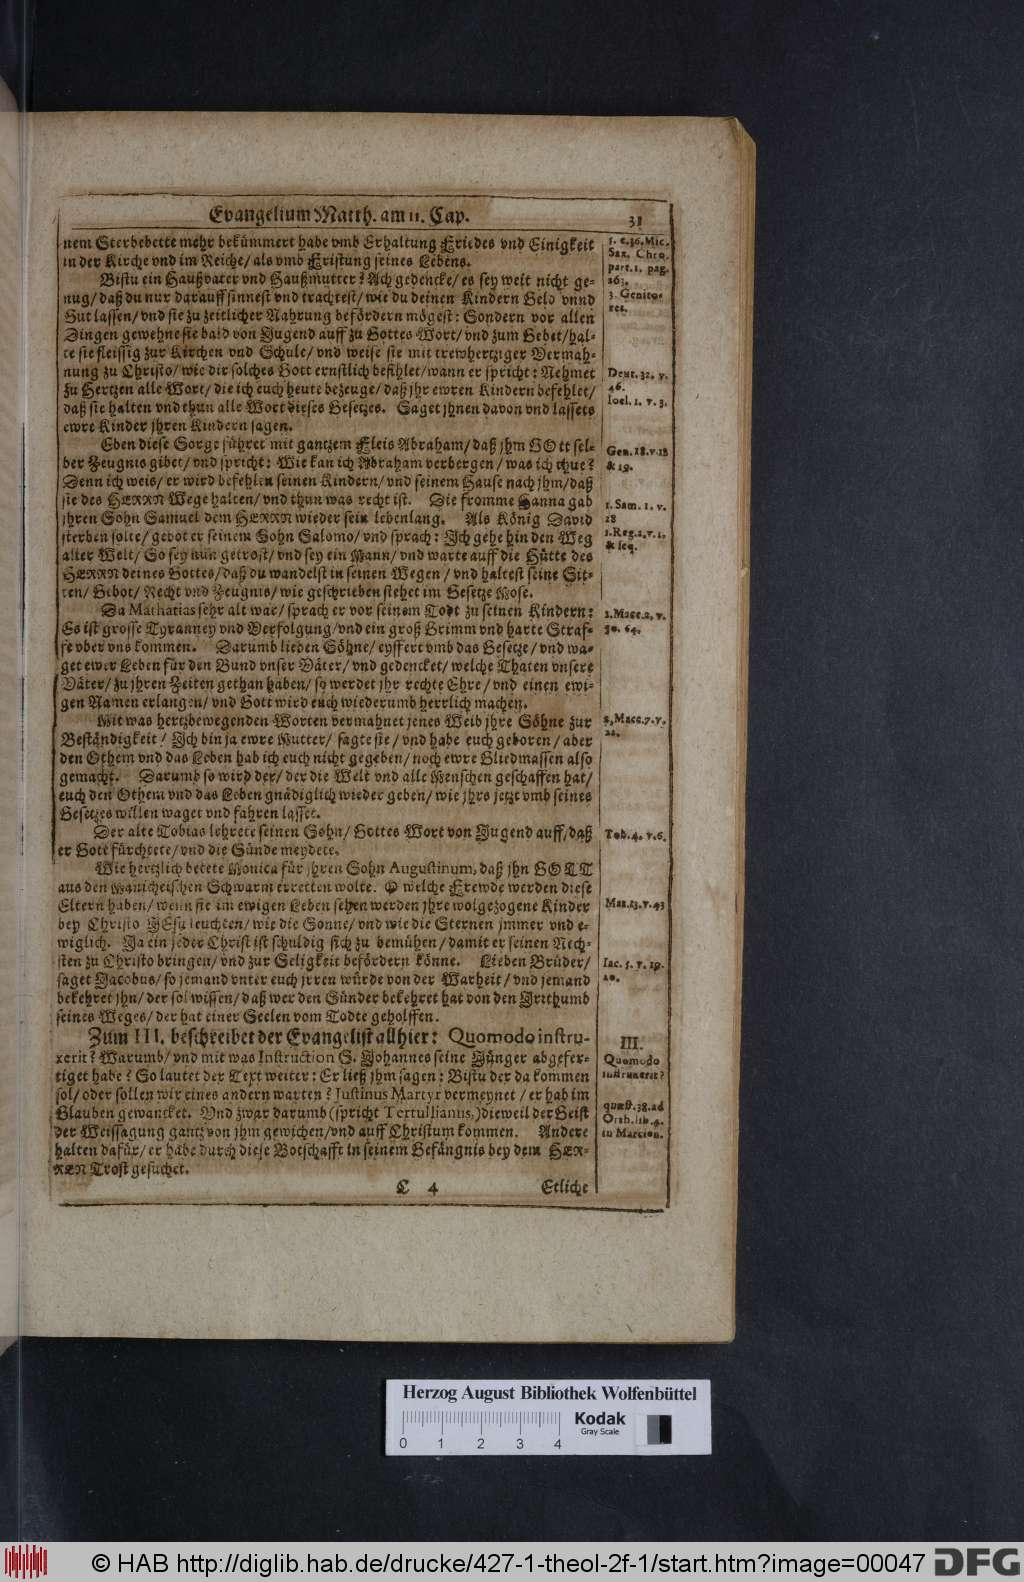 Evangelium Matth. am 11. Cap.
31
nem Sterbebette mehr bekümmert habe vmb Erhaltung Friedes vnd Einigkeit
in der Kirche vnd im Reiche/ als vmb Fristung seines Lebens.
Bistu ein Haußvater vnd Haußmutter? Ach gedencke/ es sey weit nicht ge-
nug/ daß du nur darauff sinnest vnd trachtest/ wie du deinen Kindern Geld vnnd
Gut lassen/ vnd sie zu zeitlicher Nahrung befördern mögest: Sondern vor allen
Dingen gewehne sie bald von Jugend auff zu Gottes Wort/ vnd zum Gebet/ hal-
te sie fleissig zur Kirchen vnd Schule/ vnd weise sie mit trewhertziger Vermah-
nung zu Christo/ wie dir solches Gott ernstlich befihlet/ wann er spricht: Nehmet
zu Hertzen alle Wort/ die ich euch heute bezeuge/ daß jhr ewren Kindern befehlet/
daß sie halten vnd thun alle Wort dieses Gesetzes. Saget jhnen davon vnd lassets
ewre Kinder jhren Kindern sagen.
Eben diese Sorge führet mit gantzem Fleis Abraham/ daß jhm GOtt sel-
ber Zeugnis gibet/ vnd spricht: Wie kan ich Abraham verbergen/ was ich thue?
Denn ich weis/ er wird befehlen seinen Kindern/ vnd seinem Hause nach jhm/ daß
sie des HERRN Wege halten/ vnd thun was recht ist. Die fromme Hanna gab
jhren Sohn Samuel dem HERRN wieder sein lebenlang. Als König David
sterben solte/ gebot er seinem Sohn Salomo/ vnd sprach: Ich gehe hin den Weg
aller Welt/ So sey nun getrost/ vnd sey ein Mann/ vnd warte auff die Hütte des
HERRN deines Gottes/ daß du wandelst in seinen Wegen/ vnd haltest seine Sit-
ten/ Gebot/ Recht vnd Zeugnis/ wie geschrieben stehet im Gesetze Mose.
Da Mathatias sehr alt war/ sprach er vor seinem Todt zu seinen Kindern:
Es ist grosse Tyranney vnd Verfolgung/ vnd ein groß Grimm vnd harte Straf-
fe vber vns kommen. Darumb lieben Söhne/ eyffert vmb das Gesetze/ vnd wa-
get ewer Leben für den Bund vnser Väter/ vnd gedencket/ welche Thaten vnsere
Väter/ zu jhren Zeiten gethan haben/ so werdet jhr rechte Ehre/ vnd einen ewi-
gen Namen erlangen/ vnd Gott wird euch wiederumb herrlich machen.
Mit was hertzbewegenden Worten vermahnet jenes Weib jhre Söhne zur
Beständigkeit/ Ich bin ja ewre Mutter/ sagte sie/ vnd habe euch geboren/ aber
den Othem vnd das Leben hab ich euch nicht gegeben/ noch ewre Gliedmassen also
gemacht. Darumb so wird der/ der die Welt vnd alle Menschen geschaffen hat/
euch den Othem vnd das Leben gnädiglich wieder geben/ wie jhrs jetzt vmb seines
Gesetzes willen waget vnd fahren lasset.
Der alte Tobias lehrete seinen Sohn/ Gottes Wort von Jugend auff/ daß
er Gott fürchtete/ vnd die Sünde meydete.
Wie hertzlich betete Monica für jhren Sohn Augustinum, daß jhn GOTT
aus den Manicheischen Schwarm erretten wolte. O welche Frewde werden diese
Eltern haben/ wenn sie im ewigen Leben sehen werden jhre wolgezogene Kinder
bey Christo JEsu leuchten/ wie die Sonne/ vnd wie die Sternen jmmer vnd e-
wiglich. Ja ein jeder Christ ist schuldig sich zu bemühen/ damit er seinen Nech-
sten zu Christo bringen/ vnd zur Seligkeit befördern könne. Lieben Brüder/
saget Jacobus/ so jemand vnter euch jrren würde von der Warheit/ vnd jemand
bekehret jhn/ der sol wissen/ daß wer den Sünder bekehret hat von den Irrthumb
seines Weges/ der hat einer Seelen vom Todte geholffen.
Zum III. beschreibet der Evangelist allhier: Quomodo instru-
xerit? Warumb/ vnd mit was Instruction S. Johannes seine Jünger abgefer-
tiget habe? So lautet der Text weiter: Er ließ jhm sagen: Bistu der da kommen
sol/ oder sollen wir eines andern warten? Iustinus Martyr vermeynet/ er hab im
Glauben gewancket. Vnd zwar darumb (spricht Tertullianus,) dieweil der Geist
der Weissagung gantz von jhm gewichen/ vnd auff Christum kommen. Andere
halten dafür/ er habe durch diese Botschafft in seinem Gefängnis bey dem HER-
REN Trost gesuchet.
C 4
Etliche
f. c. 36. Mic.
Sax. Chro.
part. 1. pag.
263.
3 Genito-
res.
Deut. 32. v.
46.
Ioel. 1. v. 3.
Gen. 18. v 18
& 19.
1. Sam. 1. v.
28
1. Reg. 2. v. 1.
& seq.
1. Macc. 2. v.
50. 64.
2. Macc. 7. v.
22.
Tob. 4. v. 6.
Mat. 13. v. 43
Iac. 5. v. 19.
20.
III.
Quomodo
instruxerit?
quæst. 38. ad
Orth. lib. 4.
in Marcion.
Herzog August Bibliothek Wolfenbüttel
0 1 2 3 4
Kodak
Gray Scale
© HAB http://diglib.hab.de/drucke/427-1-theol-2f-1/start.htm?image=00047
DFG